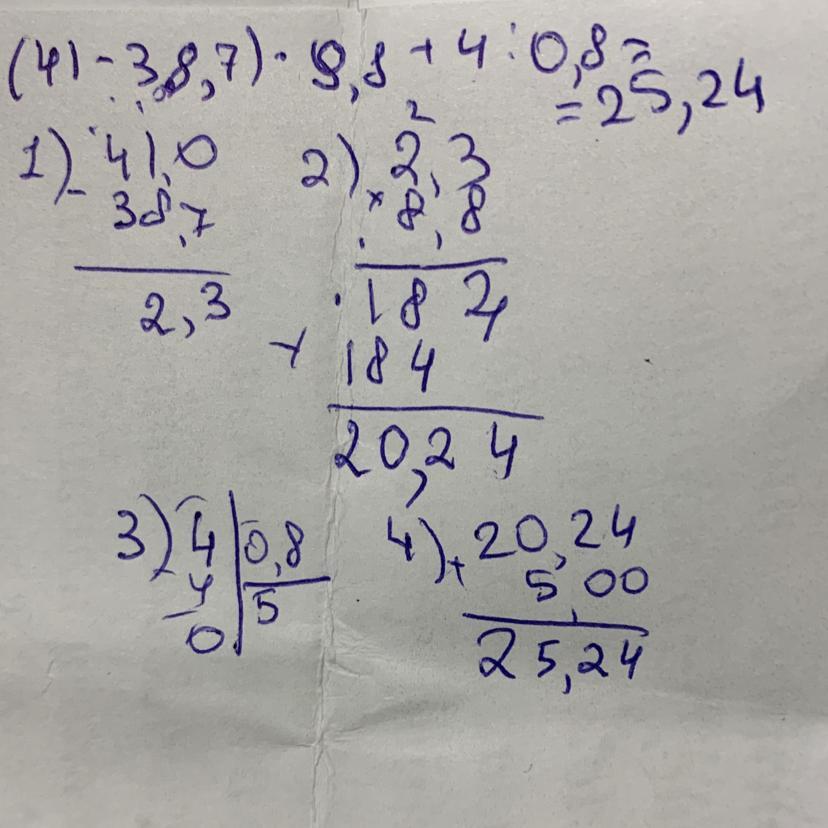 (41 - 38,7) · 8,8 + 4 : 0,8 =
= 25,24
1) - 41,0
38,7
2,3
2) × 2,3
2
8,8
184
+ 184
20,24
3) - 4 | 0,8
4 | 5
0
4) + 20,24
5,00
25,24